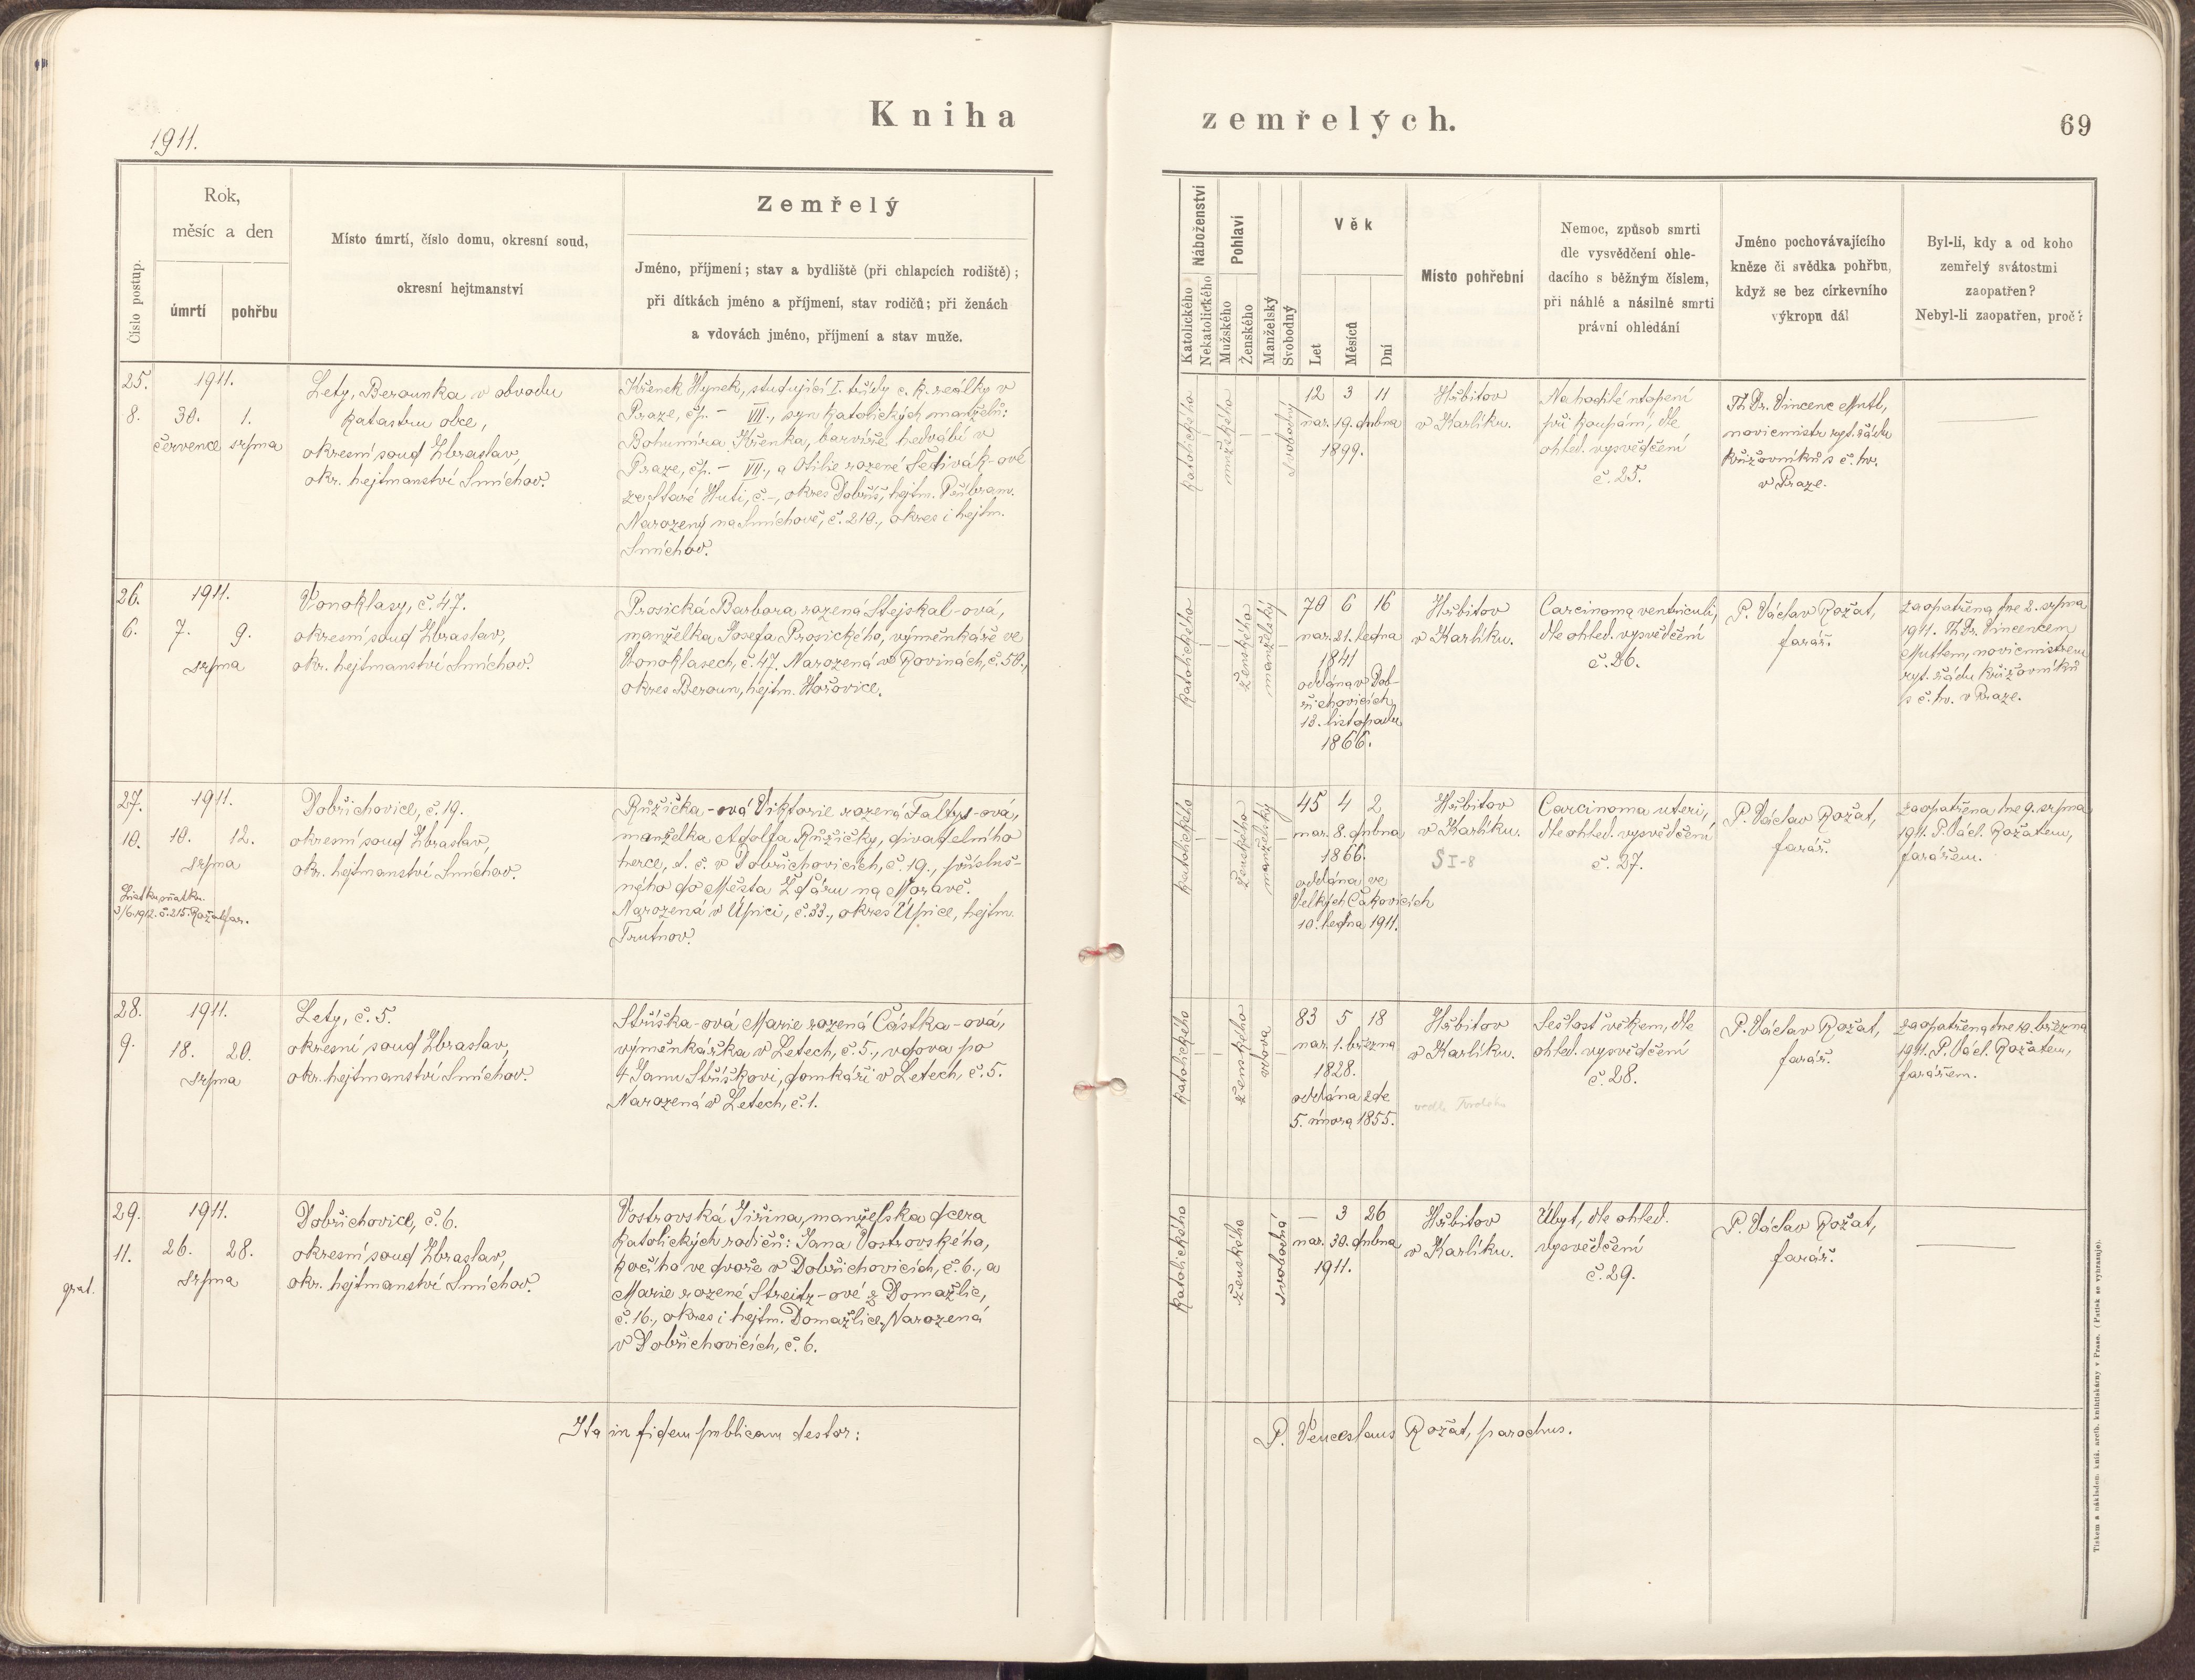 Kniha zemřelých.
69
1911.
Číslo postup.
Rok,
měsíc a den
úmrtí
pohřbu
Místo úmrtí, číslo domu, okresní soud,
okresní hejtmanství
Zemřelý
Jméno, příjmení; stav a bydliště (při chlapcích rodiště);
při dítkách jméno a příjmení, stav rodičů; při ženách
a vdovách jméno, příjmení a stav muže.
Náboženství
Katolického
Nekatolického
Pohlaví
Mužského
Ženského
Manželský
Svobodný
Věk
Let
Měsíců
Dní
Místo pohřební
Nemoc, způsob smrti
dle vysvědčení ohle-
dacího s běžným číslem,
při náhlé a násilné smrti
právní ohledání
Jméno pochovávajícího
kněze či svědka pohřbu,
když se bez církevního
výkropu dál
Byl-li, kdy a od koho
zemřelý svátostmi
zaopatřen?
Nebyl-li zaopatřen, proč?
25.
8.
1911.
30. 1.
července srpna
Lety, Beraunka v obvodu
katastru obce,
okresní soud Zbraslav,
okr. hejtmanství Smíchov.
Křenek Hynek, studující I. třídy c. k. reálky v
Praze, čp. – VII., syn katolických manželů:
Bohumíra Křenka, barvíře hedvábí v
Praze, čp. – VII., a Otilie rozené Šedivák-ové
ze Staré Huti, č. –, okres Dobříš, hejtm. Příbram.
Narozený na Smíchově, č. 210., okres i hejtm.
Smíchov.
katolického
mužského
svobodný
12 3 11
nar. 19. dubna
1899.
Hřbitov
v Karlíku.
Nahodilé utopení
při koupání, dle
ohled. vysvědčení
č. 25.
Th. Dr. Vincenc Mutl,
novicmistr ryt. řádu
křižovníků s č. hv.
v Praze.
26.
6.
1911.
7. 9.
srpna
Vonoklasy, č. 47.
okresní soud Zbraslav,
okr. hejtmanství Smíchov.
Prosická Barbora rozená Stejskal-ová,
manželka Josefa Prosického, výměnkáře ve
Vonoklasech, č. 47. Narozená v Rovinách, č. 50.,
okres Beroun, hejtm. Hořovice.
katolického
ženského
manželský
70 6 16
nar. 21. ledna
1841
oddána v Dob-
řichovicích
13. listopadu
1866.
Hřbitov
v Karlíku.
Carcinoma ventriculi,
dle ohled. vysvědčení
č. 26.
P. Václav Rožat,
farář.
zaopatřena dne 2. srpna
1911. Th. Dr. Vincencem
Mutlem, novicmistrem
ryt. řádu křižovníků
s č. hv. v Praze.
27.
10.
1911.
10. 12.
srpna
3/6. 1912. č. 215. Rožat far.
Dobřichovice, č. 19.
okresní soud Zbraslav,
okr. hejtmanství Smíchov.
Růžička-ová Viktorie rozená Faltys-ová,
manželka Adolfa Růžičky, divadelního
herce, t. č. v Dobřichovicích, č. 19., přísluš-
ného do Města Žďáru na Moravě.
Narozená v Úpici, č. 33., okres Úpice, hejtm.
Trutnov.
katolického
ženského
manželský
45 4 2
nar. 8. dubna
1866.
oddána ve
Velkých Čakovicích
10. ledna 1911.
Hřbitov
v Karlíku.
S I-8
Carcinoma uteri,
dle ohled. vysvědčení
č. 27.
P. Václav Rožat,
farář.
zaopatřena dne 9. srpna
1911. P. Václ. Rožatem,
farářem.
28.
9.
1911.
18. 20.
srpna
Lety, č. 5.
okresní soud Zbraslav,
okr. hejtmanství Smíchov.
Stříška-ová Marie rozená Částka-ová,
výměnkářka v Letech, č. 5., vdova po
† Janu Stříškovi, domkáři v Letech, č. 5.
Narozená v Letech, č. 1.
katolického
ženského
vdova
83 5 18
nar. 1. března
1828.
oddána zde
5. února 1855.
Hřbitov
v Karlíku.
vedle
Sešlost věkem, dle
ohled. vysvědčení
č. 28.
P. Václav Rožat,
farář.
zaopatřena dne 10. března
1911. P. Václ. Rožatem,
farářem.
grat.
29.
11.
1911.
26. 28.
srpna
Dobřichovice, č. 6.
okresní soud Zbraslav,
okr. hejtmanství Smíchov.
Vostrovská Jiřina, manželská dcera
katolických rodičů: Jana Vostrovského,
kočího ve dvoře v Dobřichovicích, č. 6., a
Marie rozené Streitz-ové z Domažlic,
č. 16., okres i hejtm. Domažlice. Narozená
v Dobřichovicích, č. 6.
katolického
ženského
svobodná
— 3 26
nar. 30. dubna
1911.
Hřbitov
v Karlíku.
Úbyt, dle ohled.
vysvědčení
č. 29.
P. Václav Rožat,
farář.
Ita in fidem publicam testor:
P. Venceslaus Rožat, parochus.
Tiskem a nákladem kníž. arcib. knihtiskárny v Praze. (Patisk se vyhrazuje).